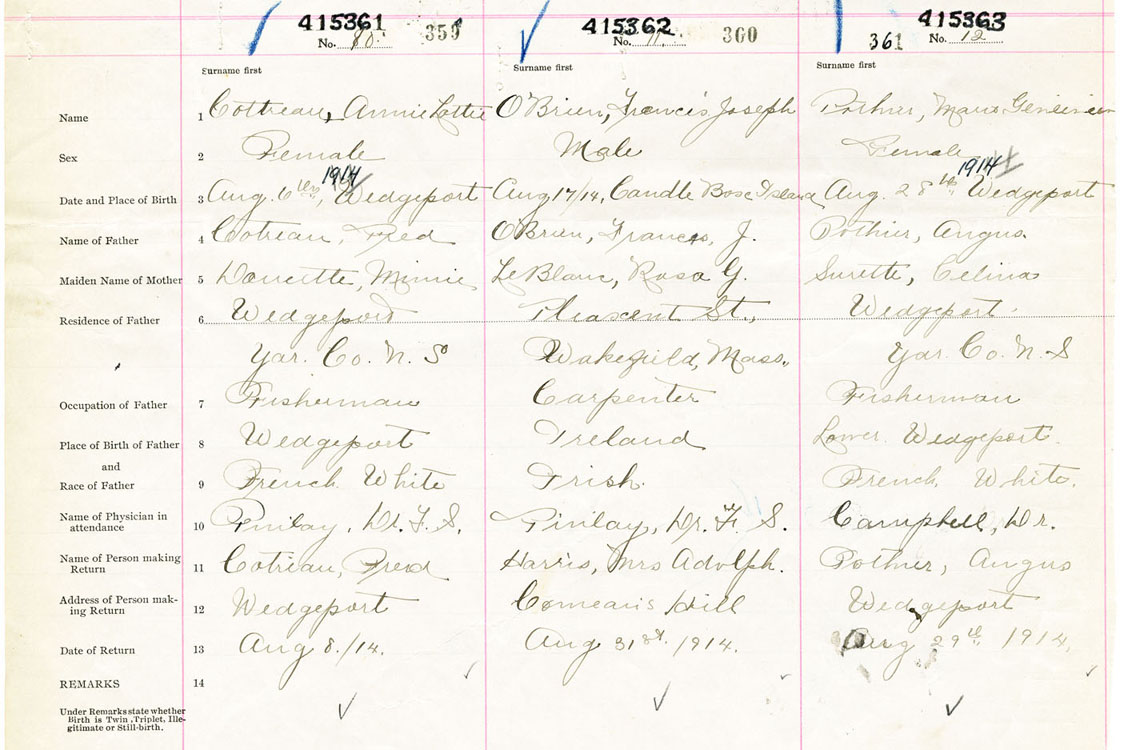 415361 415362 415363
No. 10. 359 No. 11. 360 361 No. 12
Surname first Surname first Surname first
Name 1 Cottreau, Annie Lottie O'Brien, Francis Joseph Pothier, Marie
Sex 2 Female Male Female
1914 1914
Date and Place of Birth 3 Aug. 6th, Wedgeport Aug 17/14, Candle Box Island Aug. 28th Wedgeport
Name of Father 4 Cotreau, Fred O'Brien, Francis, J. Pothier, Angus
Maiden Name of Mother 5 Doucette, Minnie LeBlanc, Rosa G. Surette, Celina
Residence of Father 6 Wedgeport Pleasent St., Wedgeport.
Yar. Co. N. S Wakefield, Mass. Yar. Co. N. S
Occupation of Father 7 Fisherman Carpenter Fisherman
Place of Birth of Father 8 Wedgeport Ireland Lower Wedgeport.
and
Race of Father 9 French White Irish. French White.
Name of Physician in
attendance 10 Finlay, Dr. F. S. Finlay, Dr. F. S. Campbell, Dr.
Name of Person making
Return 11 Cotreau, Fred Harris, Mrs Adolph. Pothier, Angus
Address of Person mak-
ing Return 12 Wedgeport Comeau's Hill Wedgeport
Date of Return 13 Aug 8/14. Aug 31st. 1914. Aug 29th 1914.
REMARKS 14
Under Remarks state whether
Birth is Twin, Triplet, Ille-
gitimate or Still-birth.